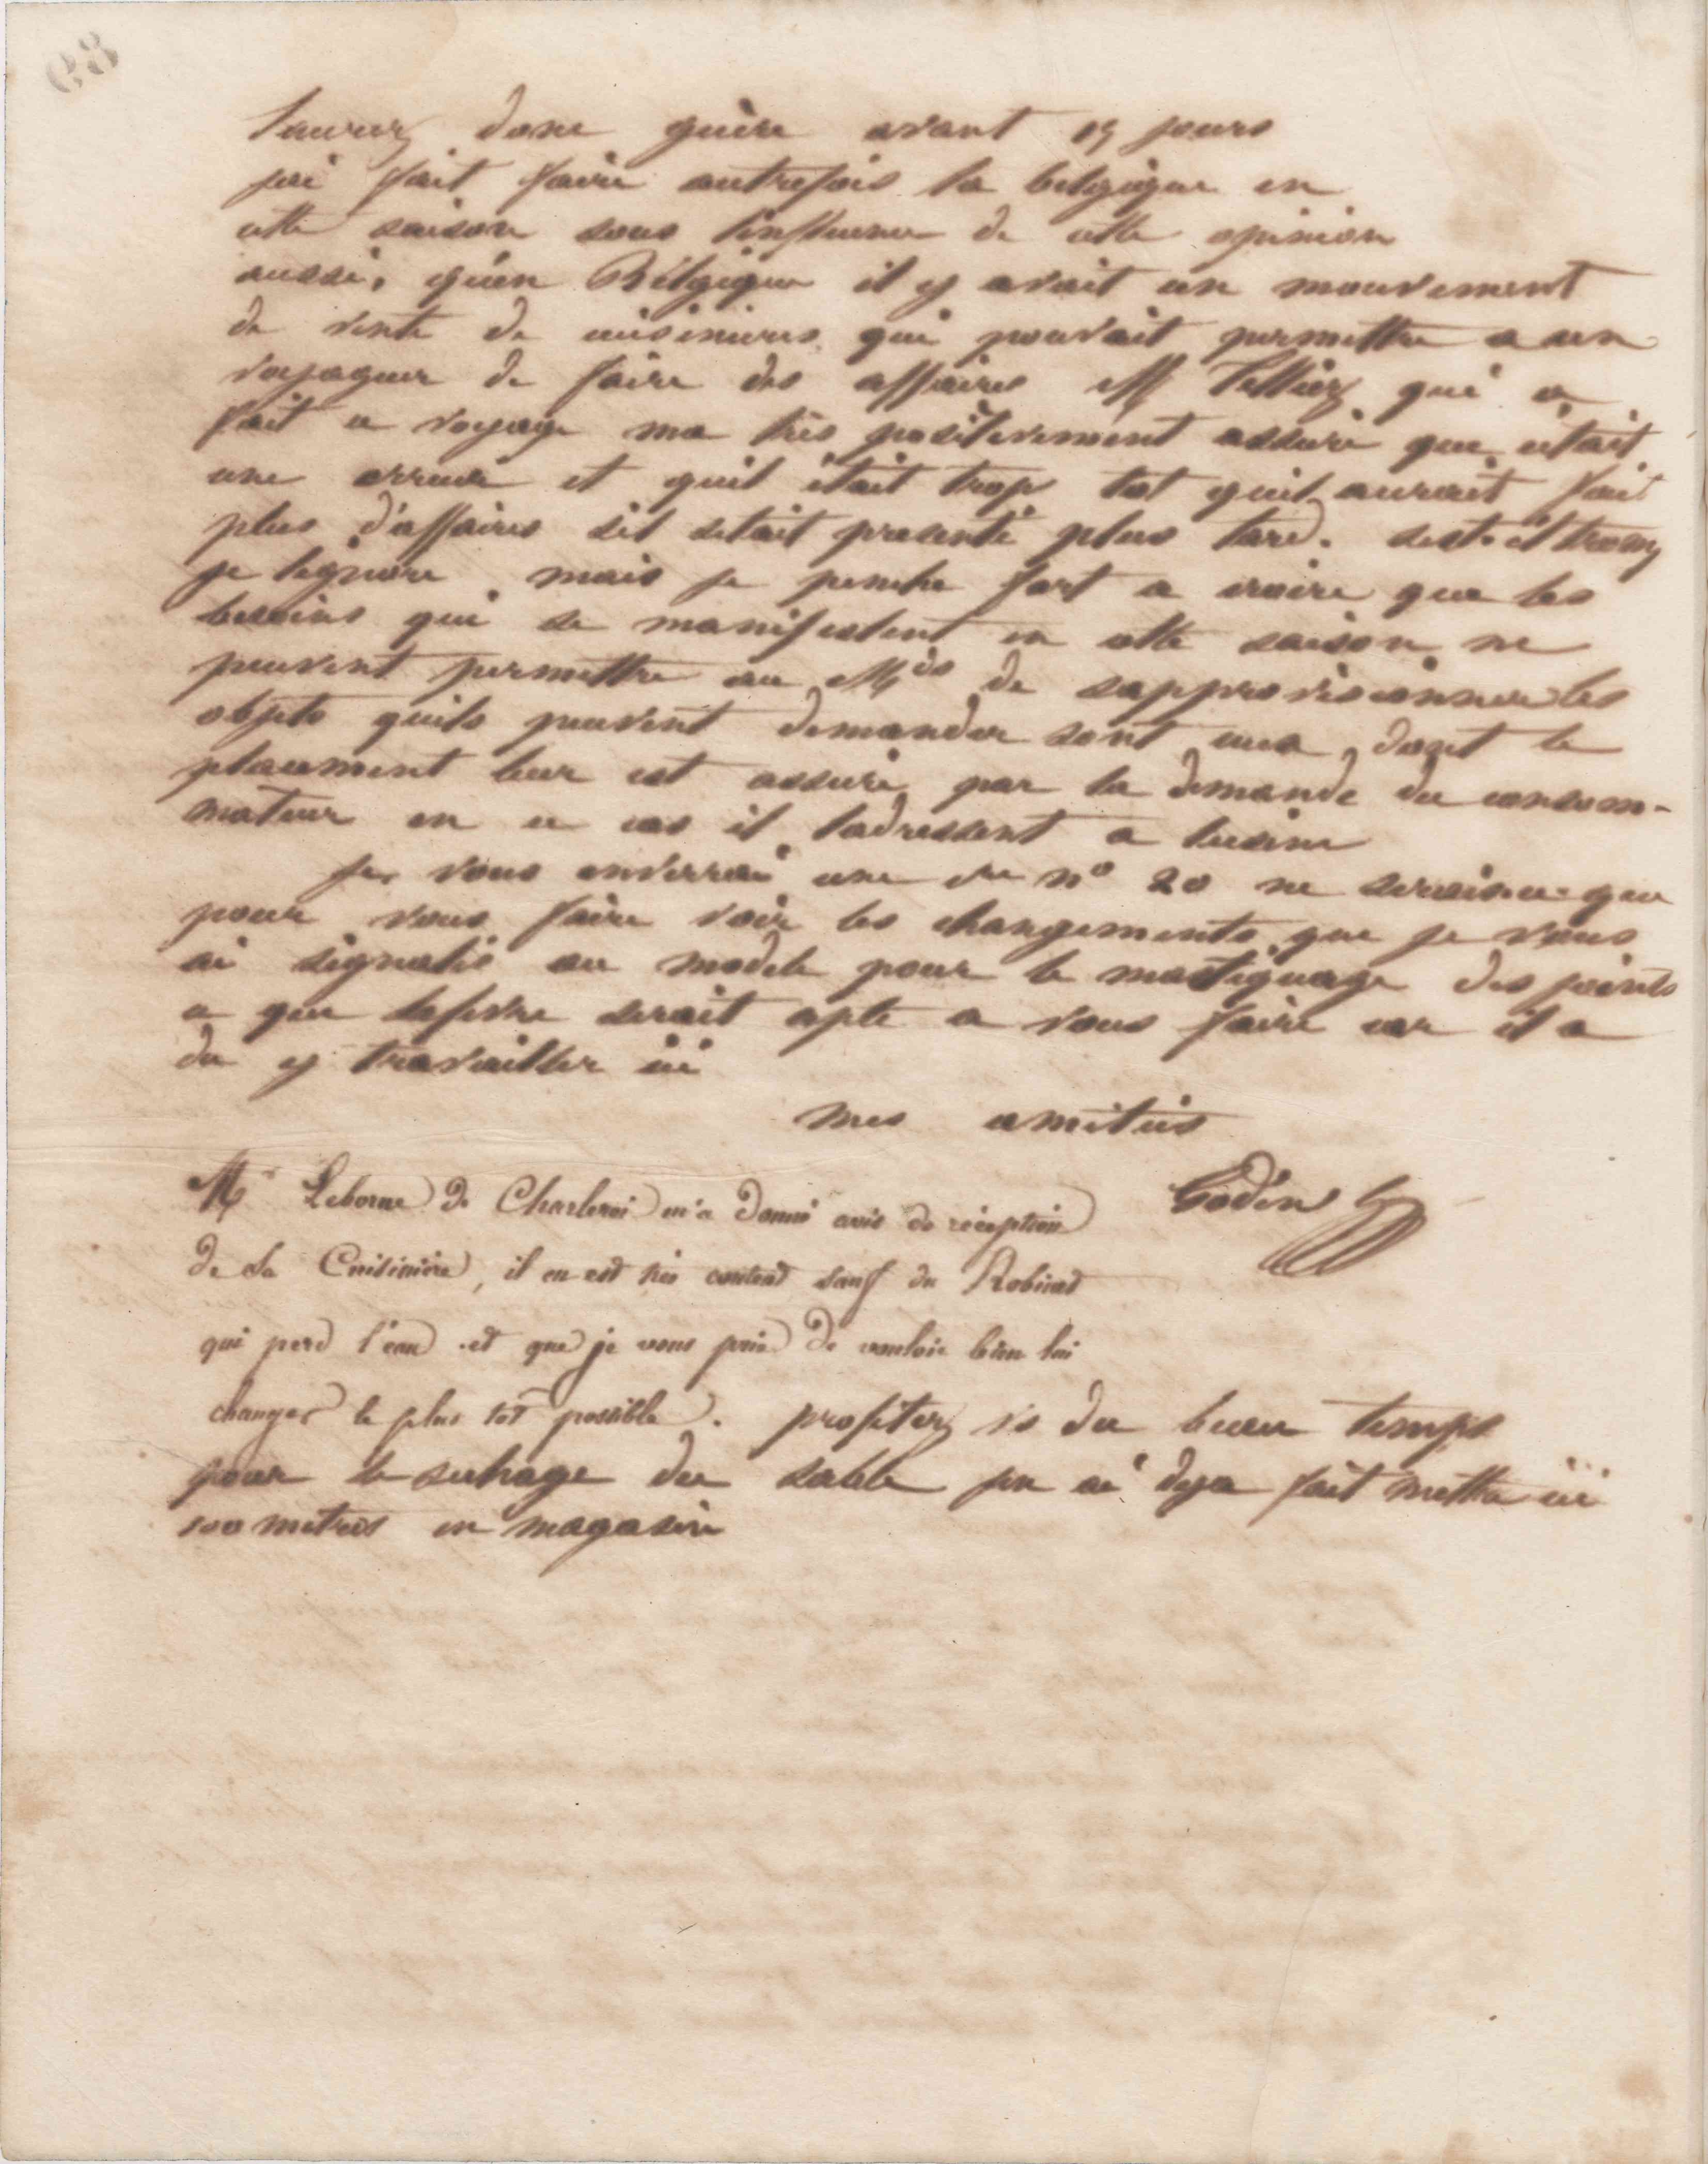 laurez donc guère avant 15 jours
jai fait faire autrefois la belgique en
cette saison sous linfluence de cette opinion
aussi, qu'en Belgique il y avait un mouvement
de vente de cuisinieres qui pouvait permettre a un
voyageur de faire des affaires Mr Tellier qui a
fait ce voyage ma très positivement assuré que cétait
une erreur et quil était trop tot quil aurait fait
plus d'affaires sil setait presenté plus tard. sest-il trompé
je lignore mais je penche fort a croire que les
besoins qui se manifestent en cette saison ne
peuvent permettre au Mds de sapprovisionner les
objets quils peuvent demander sont ceux dont le
placement leur est assuré par la demande du consom-
mateur en ce cas il ladressent a lusine
je vous enverrai une cre n° 20 ne serais-ce que
pour vous faire voir les changements que je vous
ai signalés au modele pour le masticage des joints
a que Lefevre serait apte a vous faire car il a
du y travailler ici
mes amitiés
Godin
Mr Leborne de Charleroi m'a donné avis de réception
de sa Cuisinière, il en est très content sauf du Robinet
qui perd l'eau et que je vous prie de vouloir bien lui
changer le plus tôt possible. profitez du beau temps
pour le sechage du sable jen ai deja fait mettre ici
100 metres en magasin